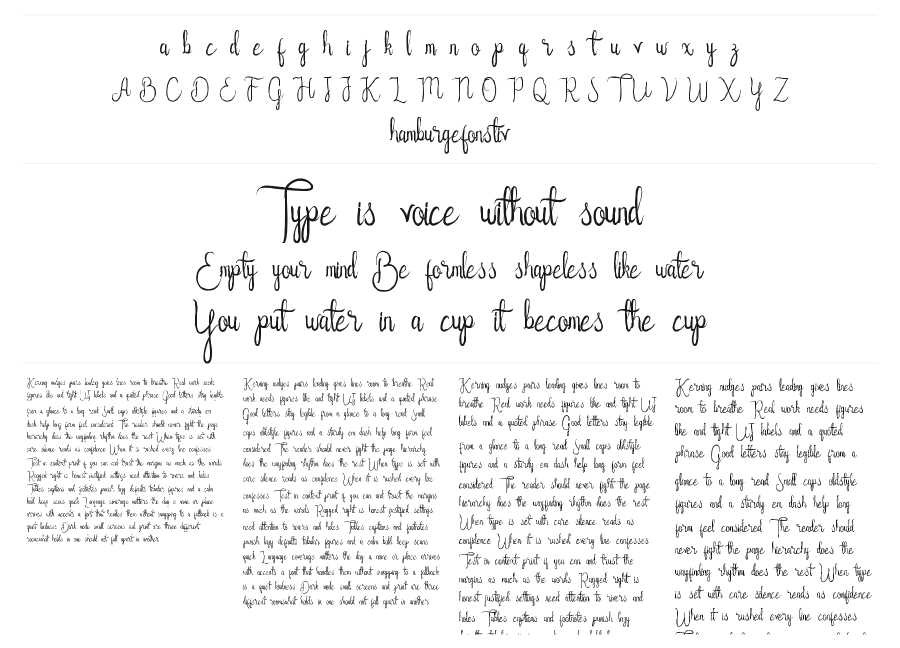 a b c d e f g h i j k l m n o p q r s t u v w x y z
A B C D E F G H I J K L M N O P Q R S T U V W X Y Z
hamburgefonstiv
Type is voice without sound
Empty your mind Be formless shapeless like water
You put water in a cup it becomes the cup
Kerning nudges pairs leading gives lines room to breathe Real work needs
figures like and tight UI labels and a quoted phrase Good letters stay legible
from a glance to a long read Small caps oldstyle figures and a sturdy en
dash help long form feel considered The reader should never fight the page
hierarchy does the wayfinding rhythm does the rest When type is set with
care silence reads as confidence When it is rushed every line confesses
Test in context print if you can and trust the margins as much as the words
Ragged right is honest justified settings need attention to rivers and holes
Tables captions and footnotes punish lazy defaults tabular figures and a calm
bold keep scans quick Language coverage matters the day a name or place
arrives with accents a font that handles them without swapping to a fallback is a
quiet kindness Dark mode small screens and print are three different
somewhat holds in one should not fall apart in another
Kerning nudges pairs leading gives lines room to breathe Real
work needs figures like and tight UI labels and a quoted phrase
Good letters stay legible from a glance to a long read Small
caps oldstyle figures and a sturdy en dash help long form feel
considered The reader should never fight the page hierarchy
does the wayfinding rhythm does the rest When type is set with
care silence reads as confidence When it is rushed every line
confesses Test in context print if you can and trust the margins
as much as the words Ragged right is honest justified settings
need attention to rivers and holes Tables captions and footnotes
punish lazy defaults tabular figures and a calm bold keep scans
quick Language coverage matters the day a name or place arrives
with accents a font that handles them without swapping to a fallback
is a quiet kindness Dark mode small screens and print are three
different somewhat holds in one should not fall apart in another
Kerning nudges pairs leading gives lines room to
breathe Real work needs figures like and tight UI
labels and a quoted phrase Good letters stay legible
from a glance to a long read Small caps oldstyle
figures and a sturdy en dash help long form feel
considered The reader should never fight the page
hierarchy does the wayfinding rhythm does the rest
When type is set with care silence reads as
confidence When it is rushed every line confesses
Test in context print if you can and trust the
margins as much as the words Ragged right is
honest justified settings need attention to rivers and
holes Tables captions and footnotes punish lazy
Kerning nudges pairs leading gives lines
room to breathe Real work needs figures
like and tight UI labels and a quoted
phrase Good letters stay legible from a
glance to a long read Small caps oldstyle
figures and a sturdy en dash help long
form feel considered The reader should
never fight the page hierarchy does the
wayfinding rhythm does the rest When type
is set with care silence reads as confidence
When it is rushed every line confesses